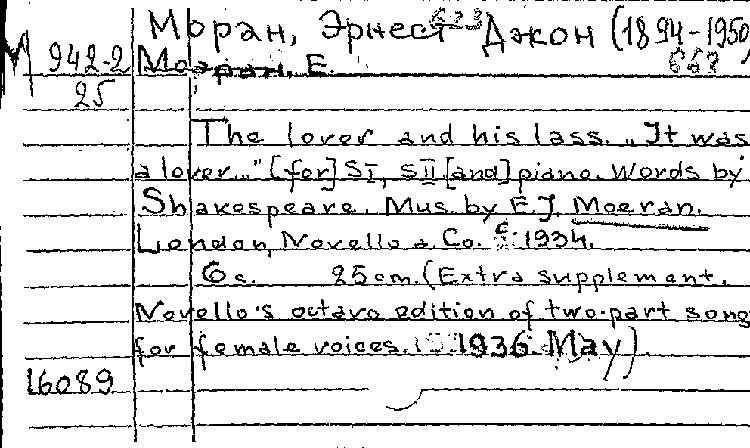 Моран, Эрнест Джон (1894-1950)
М 942-2 Моэран, Е.
25
The lover and his lass. „It was
a lover..." [for] SI, SII [and] piano. Words by
Shakespeare. Mus. by E.J. Moeran.
London, Novello a. Co. c. 1934.
6 c. 25 cm. (Extra supplement.
Novello's octavo edition of two-part song
for female voices. 1936. May)
16089